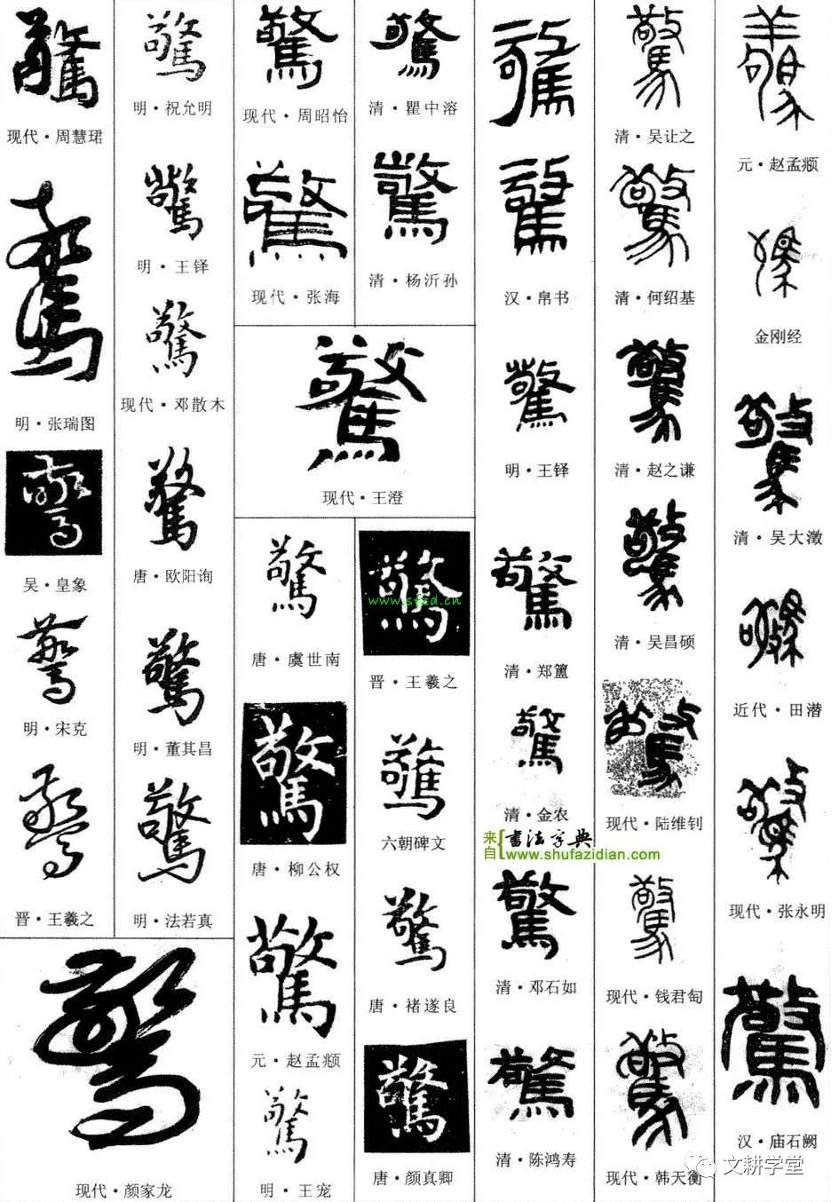 驚
现代·周慧珺
驚
明·张瑞图
驚
吴·皇象
驚
明·宋克
驚
晋·王羲之
驚
现代·颜家龙
驚
明·祝允明
驚
明·王铎
驚
现代·邓散木
驚
唐·欧阳询
驚
明·董其昌
驚
明·法若真
驚
现代·周昭怡
驚
现代·张海
驚
清·瞿中溶
驚
清·杨沂孙
驚
现代·王澄
驚
唐·虞世南
驚
唐·柳公权
驚
元·赵孟頫
驚
明·王宠
驚
www.sfzd.cn
晋·王羲之
驚
六朝碑文
驚
唐·褚遂良
驚
唐·颜真卿
驚
驚
汉·帛书
驚
明·王铎
驚
清·郑簠
驚
清·金农
来自
书法字典
www.shufazidian.com
驚
清·邓石如
驚
清·陈鸿寿
驚
清·吴让之
驚
清·何绍基
驚
清·赵之谦
驚
清·吴昌硕
驚
现代·陆维钊
驚
现代·钱君匋
驚
现代·韩天衡
驚
元·赵孟頫
金刚经
驚
清·吴大澂
近代·田潜
驚
现代·张永明
驚
汉·庙石阙
文耕学堂